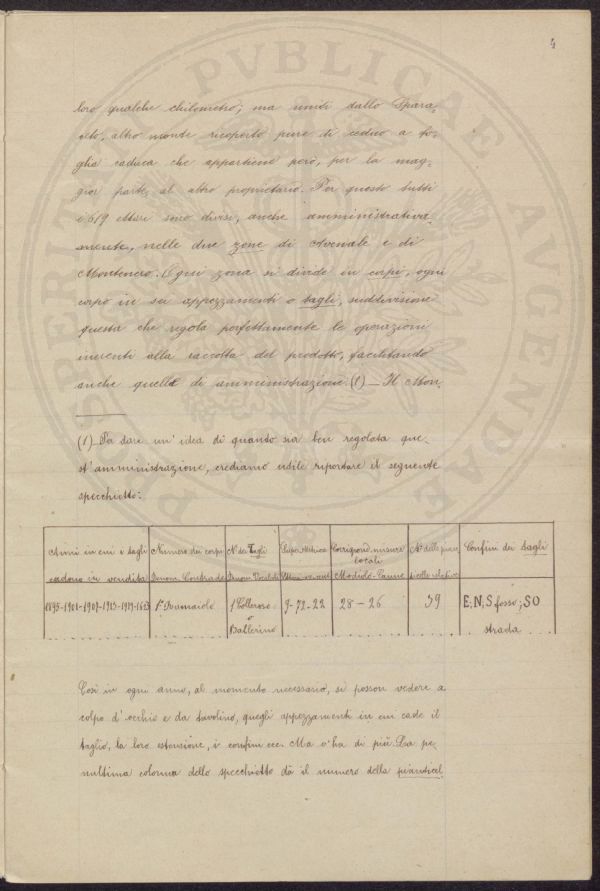 4
loro qualche chilometro; ma uniti dallo Spara-
velo, altro monte ricoperto pure di ceduo a fo-
glia caduca che appartiene però, per la mag-
gior parte, al altro proprietario. Per questo tutti
i 619 ettari sono divisi, anche amministrativa-
mente, nelle due zone di Avenale e di
Montenero. Ogni zona si divide in corpi, ogni
corpo in sei appezzamenti o tagli, suddivisione
questa che regola perfettamente le operazioni
inerenti alla raccolta del prodotto, facilitando
anche quelle di amministrazione (1) — Il Mon-
(1) Per dare un'idea di quanto sia ben regolata que-
st'amministrazione, crediamo utile riportare il seguente
specchietto:
Anni in cui i tagli cadono in vendita
Numero dei corpi Denom. Contrade
N° dei Tagli Denom. Vocaboli
Super. Metrica
Corrispond. misure locali Modiolo-Canne
N° delle pian- ticelle relative
Confini dei tagli
1895-1901-1907-1913-1919-
1°
1
o Ballerino
9-72-22
28-26
39
E, N, S fosso; SO strada
Così in ogni anno, al momento necessario, si possono vedere a
colpo d'occhio e da tavolino, quegli appezzamenti in cui cade il
taglio, la loro estensione, i confini ecc. Ma v'ha di più. La pe-
nultima colonna dello specchietto dà il numero della pianticel-
PVBLICAE AVGENDAE PROSPERITATI